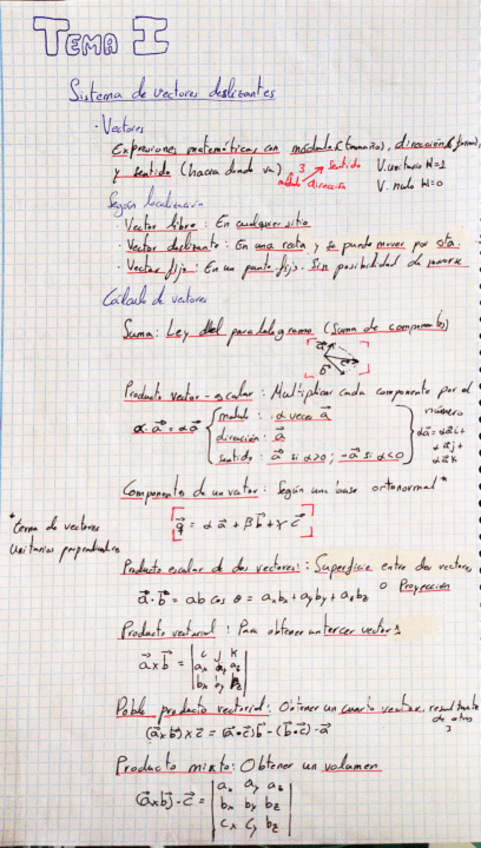 TEMA I
Sistema de vectores deslizantes
· Vectores
Expresiones matemáticas con módulo (tamaño), dirección (forma),
y sentido (hacia donde va) 3 sentido V. unitario |v|=1
módulo dirección V. nulo |v|=0
Según localización
· Vector libre: En cualquier sitio
· Vector deslizante: En una recta y se puede mover por esta.
· Vector fijo: En un punto fijo. Sin posibilidad de moverse
Cálculo de vectores
Suma: Ley del paralelogramo (Suma de componentes)
a⃗ b⃗ c⃗
Producto vector-escalar: Multiplicar cada componente por el
número
α·a⃗ = αa⃗ { modul: α veces a⃗
dirección: a⃗
sentido: a⃗ si α>0; -a⃗ si α<0 }
αa⃗ = αai+
αaj+
αak
Componentes de un vector: Según una base ortonormal*
*terna de vectores
unitarios perpendiculares
q⃗ = αa⃗ + βb⃗ + γc⃗
Producto escalar de dos vectores: Superficie entre dos vectores
o Proyección
a⃗·b⃗ = ab cos θ = axbx + ayby + azbz
Producto vectorial: Para obtener un tercer vector
a⃗xb⃗ = | i j k |
| ax ay az |
| bx by bz |
Doble producto vectorial: Obtener un cuarto vector, resultante
de otros
3
(a⃗xb⃗)xc⃗ = (a⃗·c⃗)b⃗ - (b⃗·c⃗)·a⃗
Producto mixto: Obtener un volumen
(a⃗xb⃗)·c⃗ = | ax ay az |
| bx by bz |
| cx cy bz |